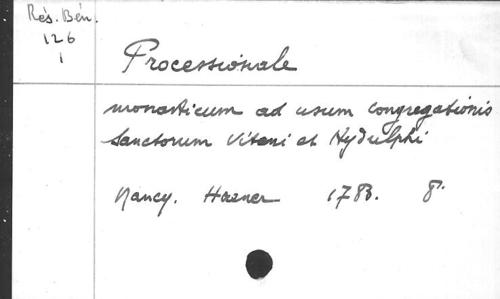 Rés. Bén.
126
1
Processionale
monasticum ad usum congregationis
Sanctorum Vitoni et Hydulphi
Nancy. Haener 1783. 8°.